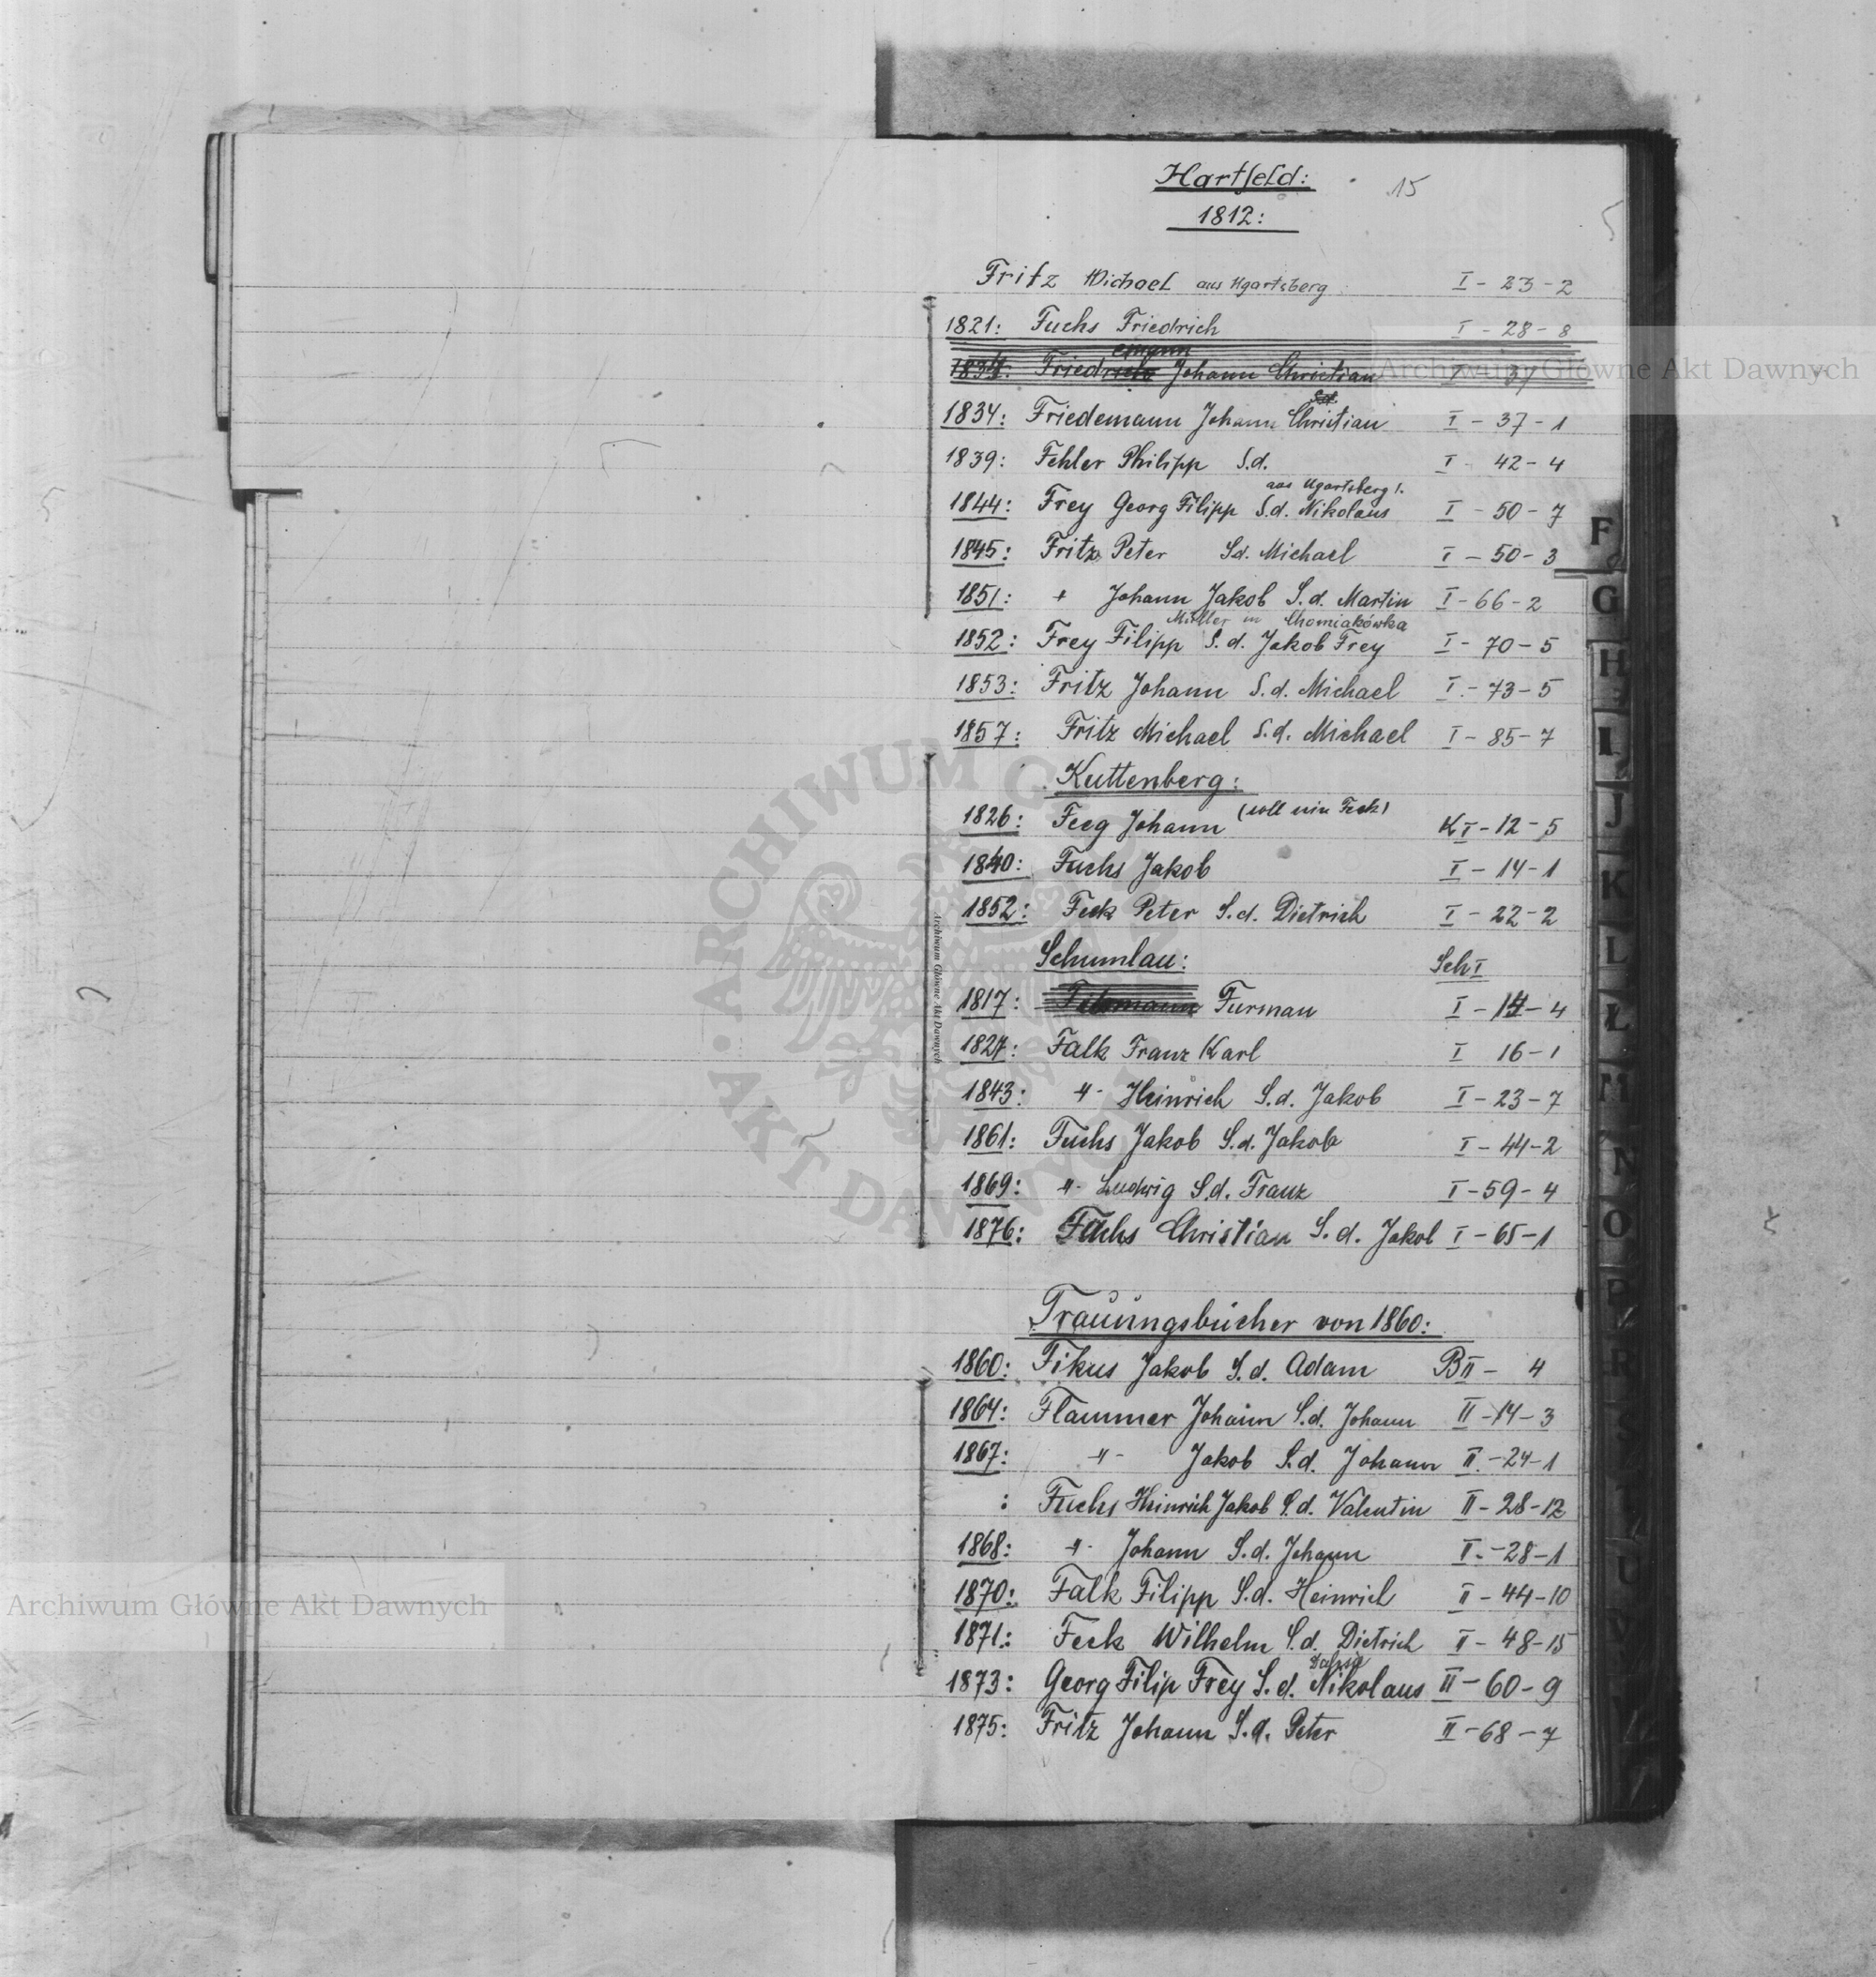 Hartfeld: 15
1812:
Fritz Michael aus Ugartsberg I - 23 - 2
1821: Fuchs Friedrich I - 28 - 8
emann
1834: Friedrich Johann Christian I 37
1834: Friedemann Johann Christian I - 37 - 1
1839: Fehler Philipp S.d. I 42 - 4
aus Ugartsberg!.
1844: Frey Georg Filipp S.d. Nikolaus I - 50 - 7
1845: Fritz Peter Sd. Michael I - 50 - 3
1851: " Johann Jakob S.d. Martin I - 66 - 2
Müller in Chomiakówka
1852: Frey Filipp S.d. Jakob Frey I - 70 - 5
1853: Fritz Johann S.d. Michael I - 73 - 5
1857: Fritz Michael S.d. Michael I - 85 - 7
Kuttenberg:
1826: Feeg Johann (soll sein Feck) K I - 12 - 5
1840: Fuchs Jakob I - 14 - 1
1852: Feck Peter S.d. Dietrich I - 22 - 2
Schumlau: Sch I
1817: Furman I - 14 - 4
1827: Falk Franz Karl I 16 - 1
1843: -"- Heinrich S.d. Jakob I - 23 - 7
1861: Fuchs Jakob S.d. Jakob I - 44 - 2
1869: -"- Ludwig S.d. Franz I - 59 - 4
1876: Fuchs Christian S.d. Jakob I - 65 - 1
Trauungsbücher von 1860:
1860: Fikus Jakob S.d. Adam B II - 4
1864: Flammer Johann S.d. Johann II - 14 - 3
1867: -"- Jakob S.d. Johann II. - 24 - 1
: Fuchs Heinrich Jakob S.d. Valentin II - 28 - 12
1868: -"- Johann S.d. Johann II. - 28 - 1
1870: Falk Filipp S.d. Heinrich II - 44 - 10
1871: Feck Wilhelm S.d. Dietrich II - 48 - 15
1873: Georg Filip Frey S.d. Nikolaus II - 60 - 9
1875: Fritz Johann S.d. Peter II - 68 - 7
F
G
H
I
J
K
L
Ł
M
N
O
P
R
S
T
U
Archiwum Główne Akt Dawnych
Archiwum Główne Akt Dawnych
Archiwum Główne Akt Dawnych